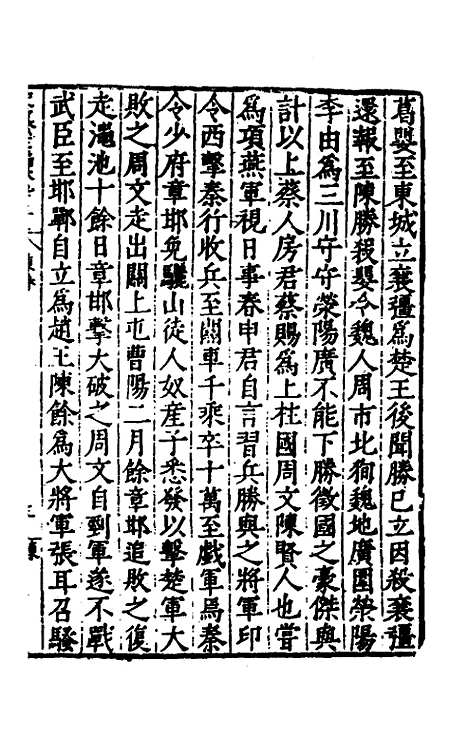 葛嬰至東城立襄彊爲楚王後聞勝已立因殺襄彊
還報至陳勝殺嬰令魏人周市北狥魏地廣圍滎陽
李由爲三川守守滎陽廣不能下勝徵國之豪傑與
計以上蔡人房君蔡賜爲上柱國周文陳賢人也嘗
爲項燕軍視日事春申君自言習兵勝與之將軍印
令西擊秦行收兵至關車千乘卒十萬至戲軍焉秦
令少府章邯免驪山徒人奴産子悉發以擊楚軍大
敗之周文走出關上屯曹陽二月餘章邯追敗之復
走澠池十餘日章邯擊大破之周文自剄軍遂不戰
武臣至邯鄲自立爲趙王陳餘爲大將軍張耳召騷